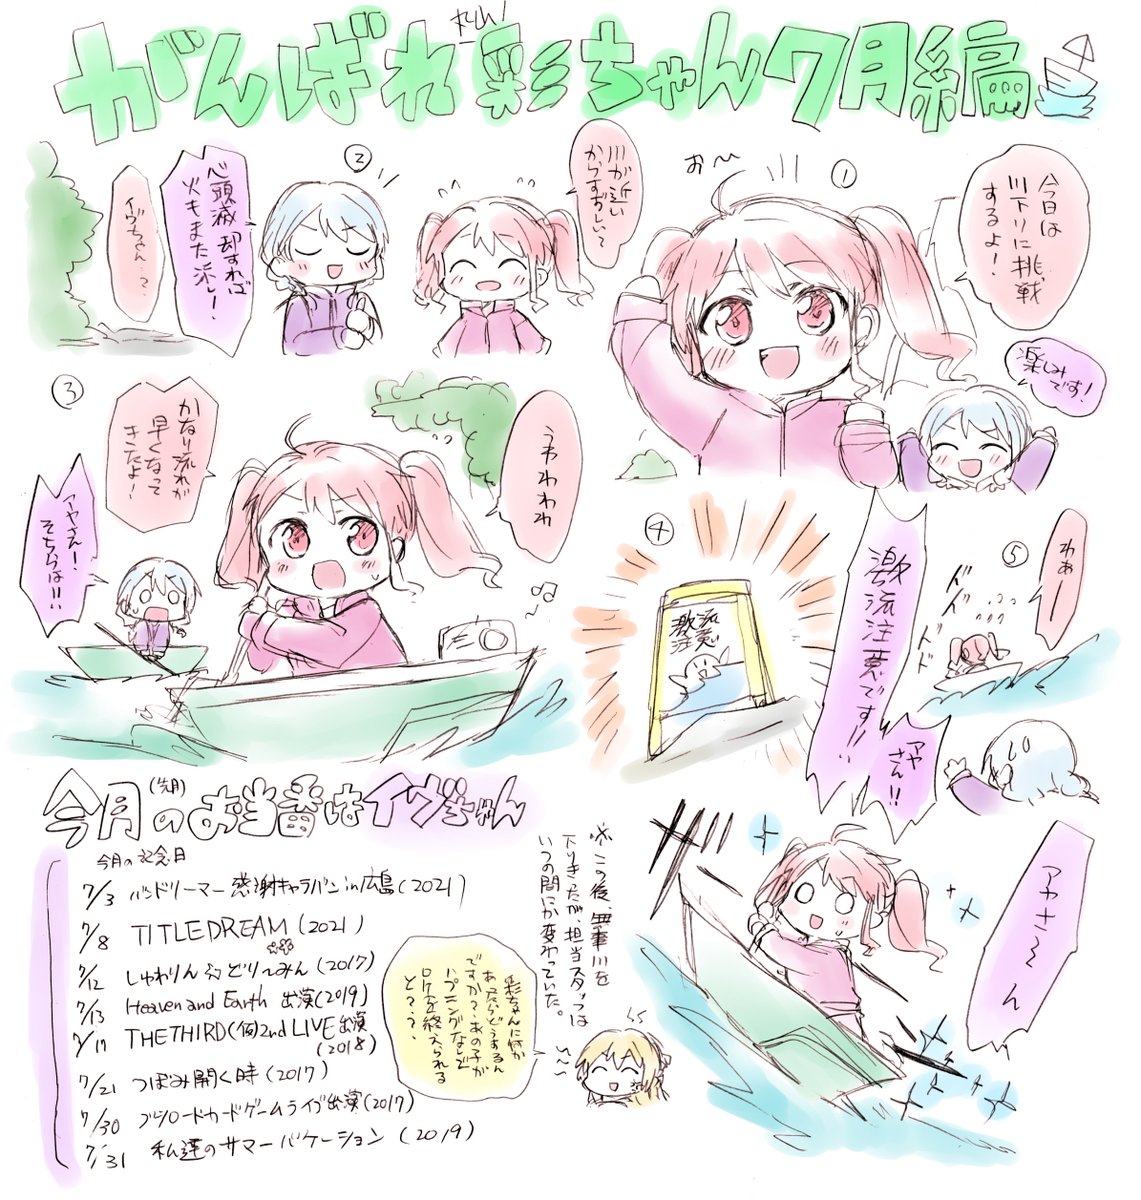 がんばれ彩ちゃん7月編
丸山!
①
今日は
川下りに挑戦
するよ!
お〜
楽しみ
です!
②
川が近い
からすずしい〜
心頭滅却すれば
火もまた涼し!
イヴちゃん…?
③
うわわわわ
かなり流れが
早くなって
きたよ!
アヤさん!
そちらは!!!
④
激流
注意
激流注意です!!
アヤ
さん!!
⑤
わぁー
ドドドド
ドドドド
アヤさ〜ん
今月の(先月)お当番はイヴちゃん
今月の記念日
7/3 バンドリーマー感謝キャラバンin広島(2021)
7/8 TITLE DREAM(2021)
7/12 しゅわりん☆どり〜みん(2017)
7/13 Heaven and Earth 出演(2019)
7/17 THE THIRD(仮)2nd LIVE出演
(2018)
7/21 つぼみ開く時(2017)
7/30 ブシロードカードゲームライブ出演(2017)
7/31 私達のサマーバケーション(2019)
※この後、無事川を
下りきったが、担当スタッフは
いつの間にか変わっていた。
彩ちゃんに何か
あったらどうするん
ですか?あの子が
ハプニングなしで
ロケを終えられる
と??